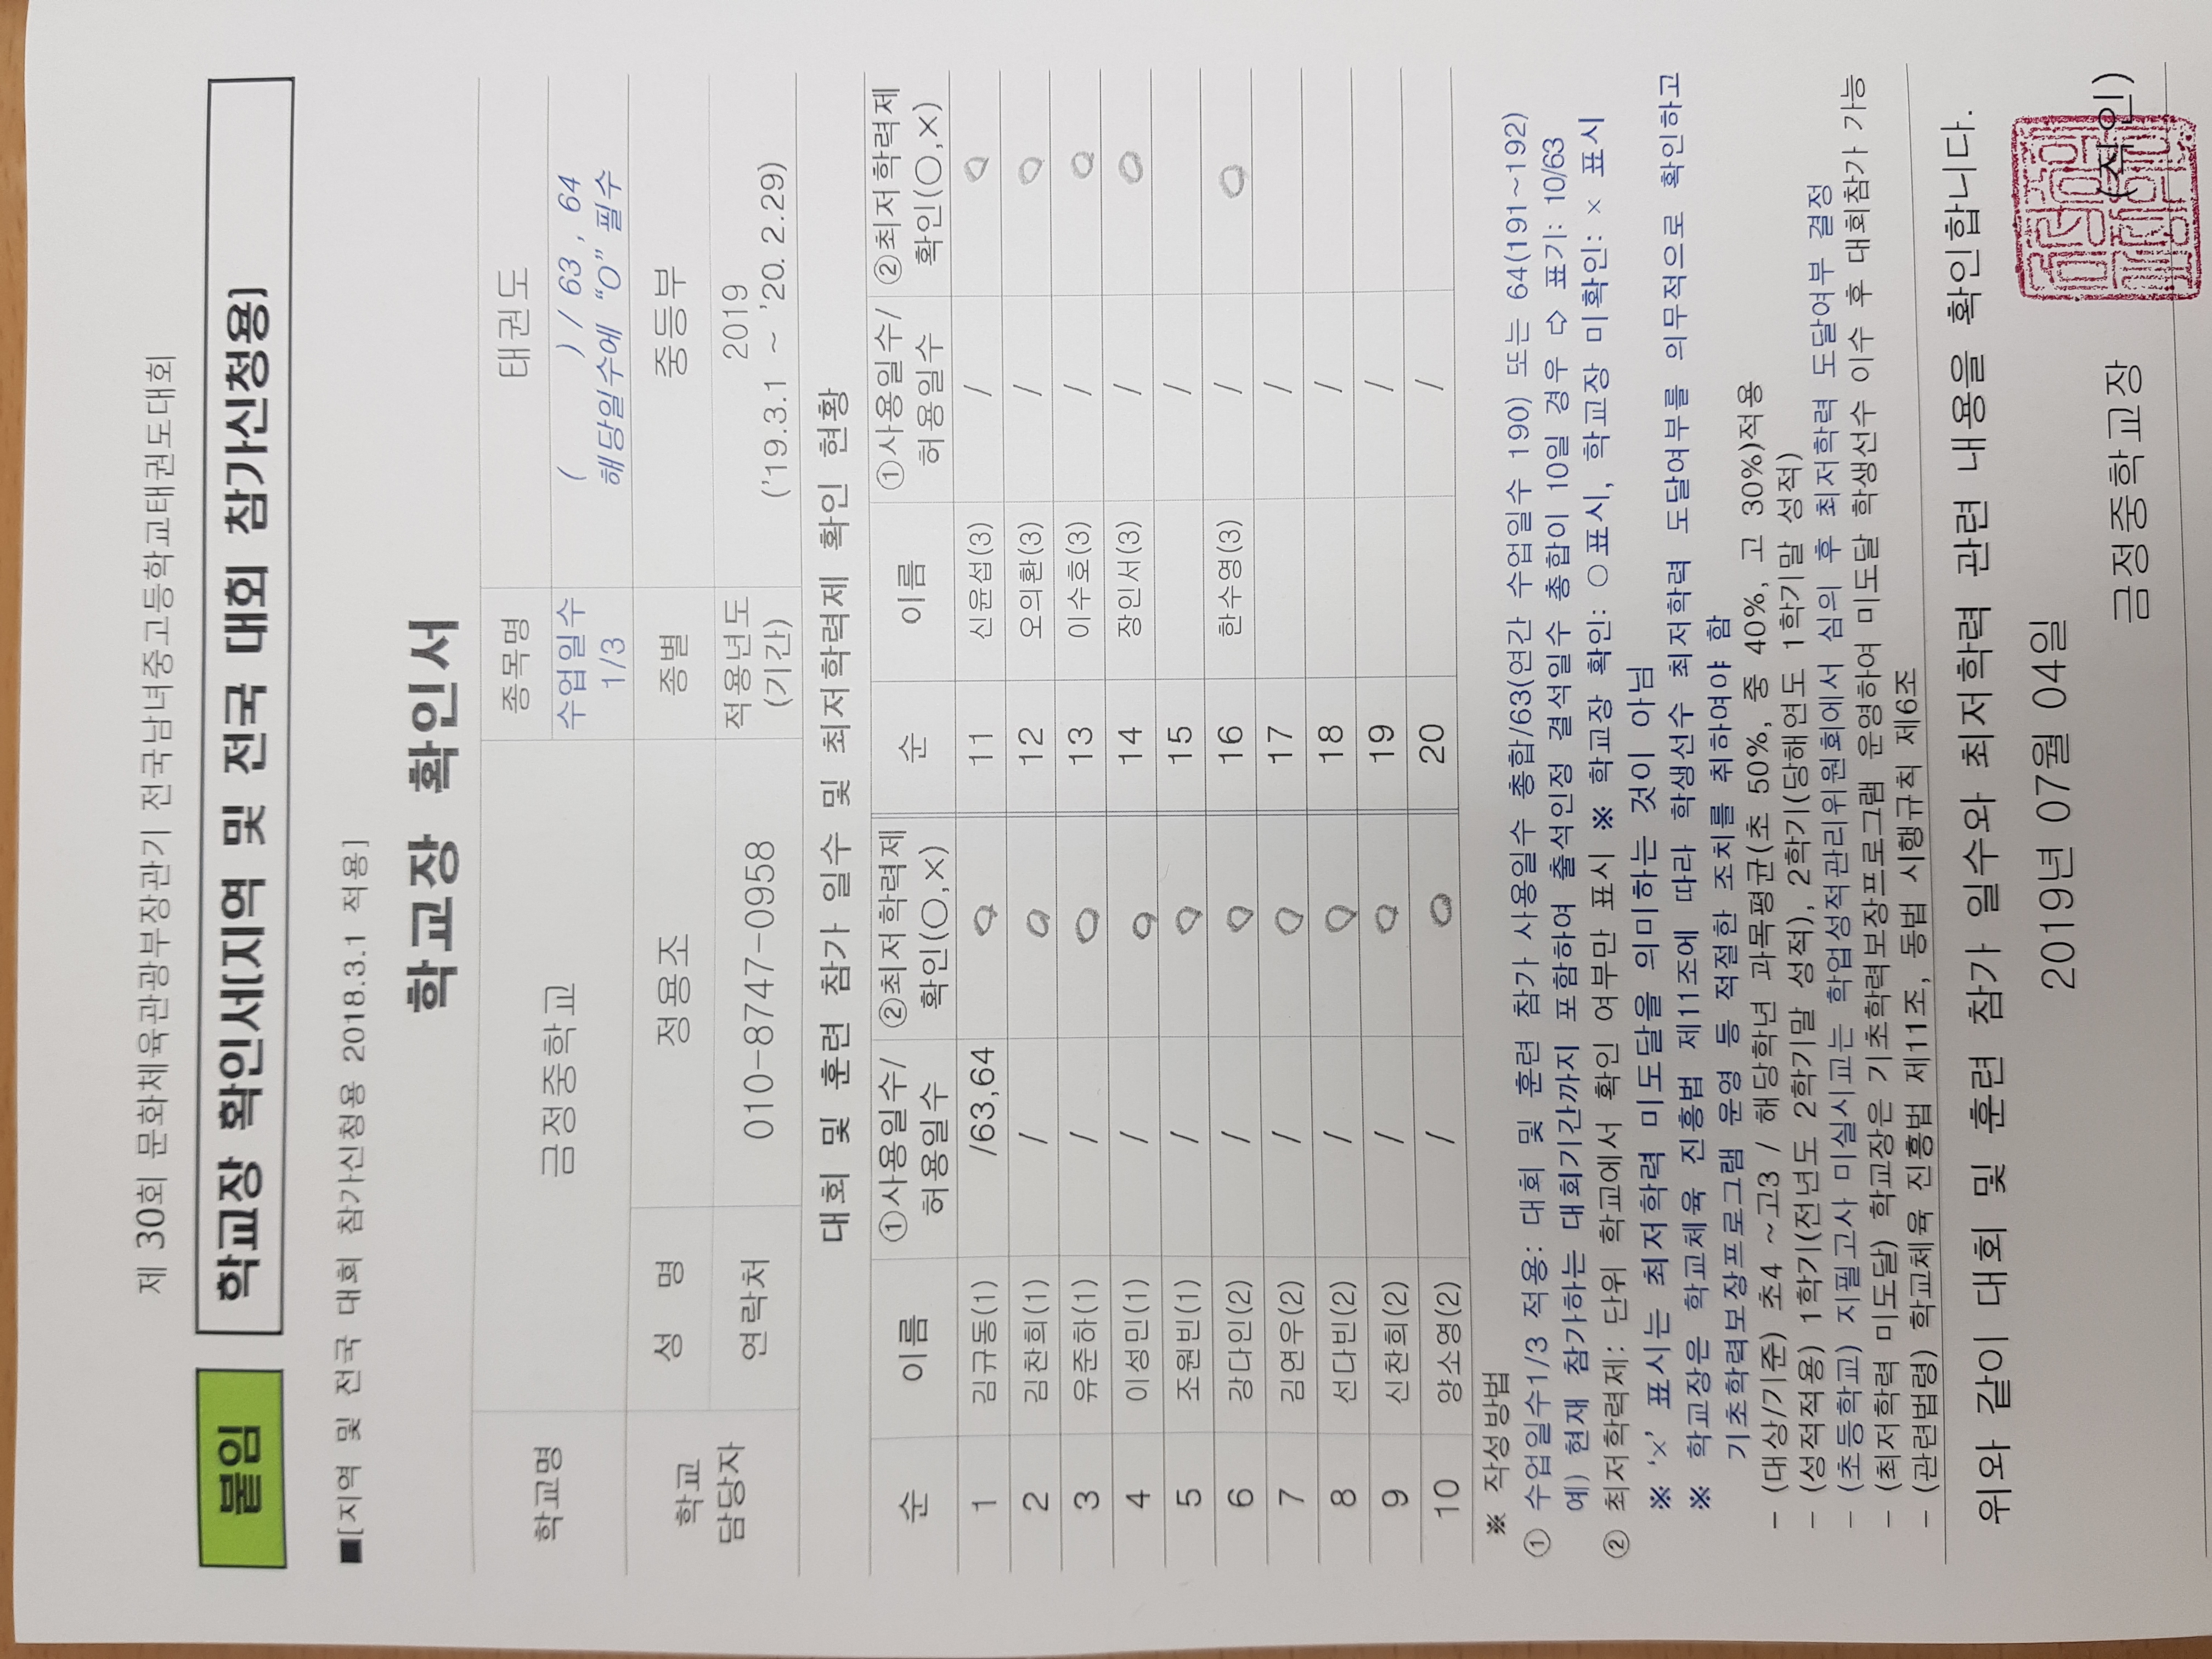 제 30회 문화체육관광부장관기 전국남녀중고등학교태권도대회
붙임 학교장 확인서(지역 및 전국 대회 참가신청용)
■[지역 및 전국 대회 참가신청용 2018.3.1 적용]
학교장 확인서
학교명 금정중학교 종목명 태권도
수업일수 1/3 ( ) / 63 , 64 해당일수에 “O” 필수
학교 담당자 성 명 정용조 종별 중등부
연락처 010-8747-0958 적용년도 (기간) 2019 ('19.3.1 ~ '20. 2.29)
대회 및 훈련 참가 일수 및 최저학력제 확인 현황
순 이름 ①사용일수/허용일수 ②최저학력제 확인(○,×) 순 이름 ①사용일수/허용일수 ②최저학력제 확인(○,×)
1 김규동(1) /63,64 ○ 11 신윤섭(3) / ○
2 김찬희(1) / ○ 12 오의환(3) / ○
3 유준하(1) / ○ 13 이수호(3) / ○
4 이성민(1) / ○ 14 장인서(3) / ○
5 조원빈(1) / ○ 15 /
6 강다인(2) / ○ 16 한수영(3) / ○
7 김연우(2) / ○ 17 /
8 선다빈(2) / ○ 18 /
9 신찬희(2) / ○ 19 /
10 양소영(2) / ○ 20 /
※ 작성방법
① 수업일수1/3 적용: 대회 및 훈련 참가 사용일수 총합/63(연간 수업일수 190) 또는 64(191~192)
예) 현재 참가하는 대회기간까지 포함하여 출석인정 결석일수 총합이 10일 경우 ⇨ 표기: 10/63
② 최저학력제: 단위 학교에서 확인 여부만 표시 ※ 학교장 확인: ○ 표시, 학교장 미확인: × 표시
※ ‘×’ 표시는 최저학력 미도달을 의미하는 것이 아님
※ 학교장은 학교체육 진흥법 제11조에 따라 학생선수 최저학력 도달여부를 의무적으로 확인하고
기초학력보장프로그램 운영 등 적절한 조치를 취하여야 함
- (대상/기준) 초4 ~고3 / 해당학년 과목평균(초 50%, 중 40%, 고 30%)적용
- (성적적용) 1학기(전년도 2학기말 성적), 2학기(당해연도 1학기말 성적)
- (초등학교) 지필고사 미실시교는 학업성적관리위원회에서 심의 후 최저학력 도달여부 결정
- (최저학력 미도달) 학교장은 기초학력보장프로그램 운영하여 미도달 학생선수 이수 후 대회참가 가능
- (관련법령) 학교체육 진흥법 제11조, 동법 시행규칙 제6조
위와 같이 대회 및 훈련 참가 일수와 최저학력 관련 내용을 확인합니다.
2019년 07월 04일
금정중학교장 (직인)